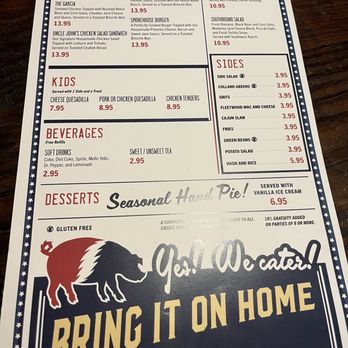 THE GARCIA
Smoked Chicken Topped with Roasted Black
Bean and Corn Salsa, Cheddar Jack Cheese
and Guac. Served on a Toasted Brioche Bun.
13.95
UNCLE JOHN'S CHICKEN SALAD SANDWICH
Our Signature Homemade Chicken Salad
Topped with Lettuce and Tomato.
Served on Toasted Challah Bread.
13.95
13.95
SMOKEHOUSE BURGER
A Perfectly Smoked Burger Topped with Our
Housemade Pimento Cheese, Bacon and
Sweet Jane Sauce. Served on a Toasted
Brioche Bun.
13.95
Served with Ranch
10.95
SOUTHBOUND SALAD
Fresh Romaine, Black Bean and Corn Salsa,
Monterey Jack Cheese Blend, Pico de Gallo,
and Fresh Tortilla Strips.
Served with Southwest Ranch
10.95
KIDS
Served with 1 Side and a Treat
CHEESE QUESADILLA
7.95
PORK OR CHICKEN QUESADILLA
8.95
CHICKEN TENDERS
8.95
BEVERAGES
Free Refills
SOFT DRINKS
Coke, Diet Coke, Sprite, Mello Yello,
Dr. Pepper, and Lemonade
2.95
SWEET / UNSWEET TEA
2.95
SIDES
SIDE SALAD 3.95
COLLARD GREENS 3.95
GRITS 3.95
FLEETWOOD MAC AND CHEESE 3.95
CAJUN SLAW 3.95
FRIES 3.95
GREEN BEANS 3.95
POTATO SALAD 3.95
HASH AND RICE 5.95
DESSERTS
Seasonal Hand Pie!
SERVED WITH
VANILLA ICE CREAM
6.95
GLUTEN FREE
18% GRATUITY ADDED
ON PARTIES OF 8 OR MORE.
Yes! We cater!
BRING IT ON HOME